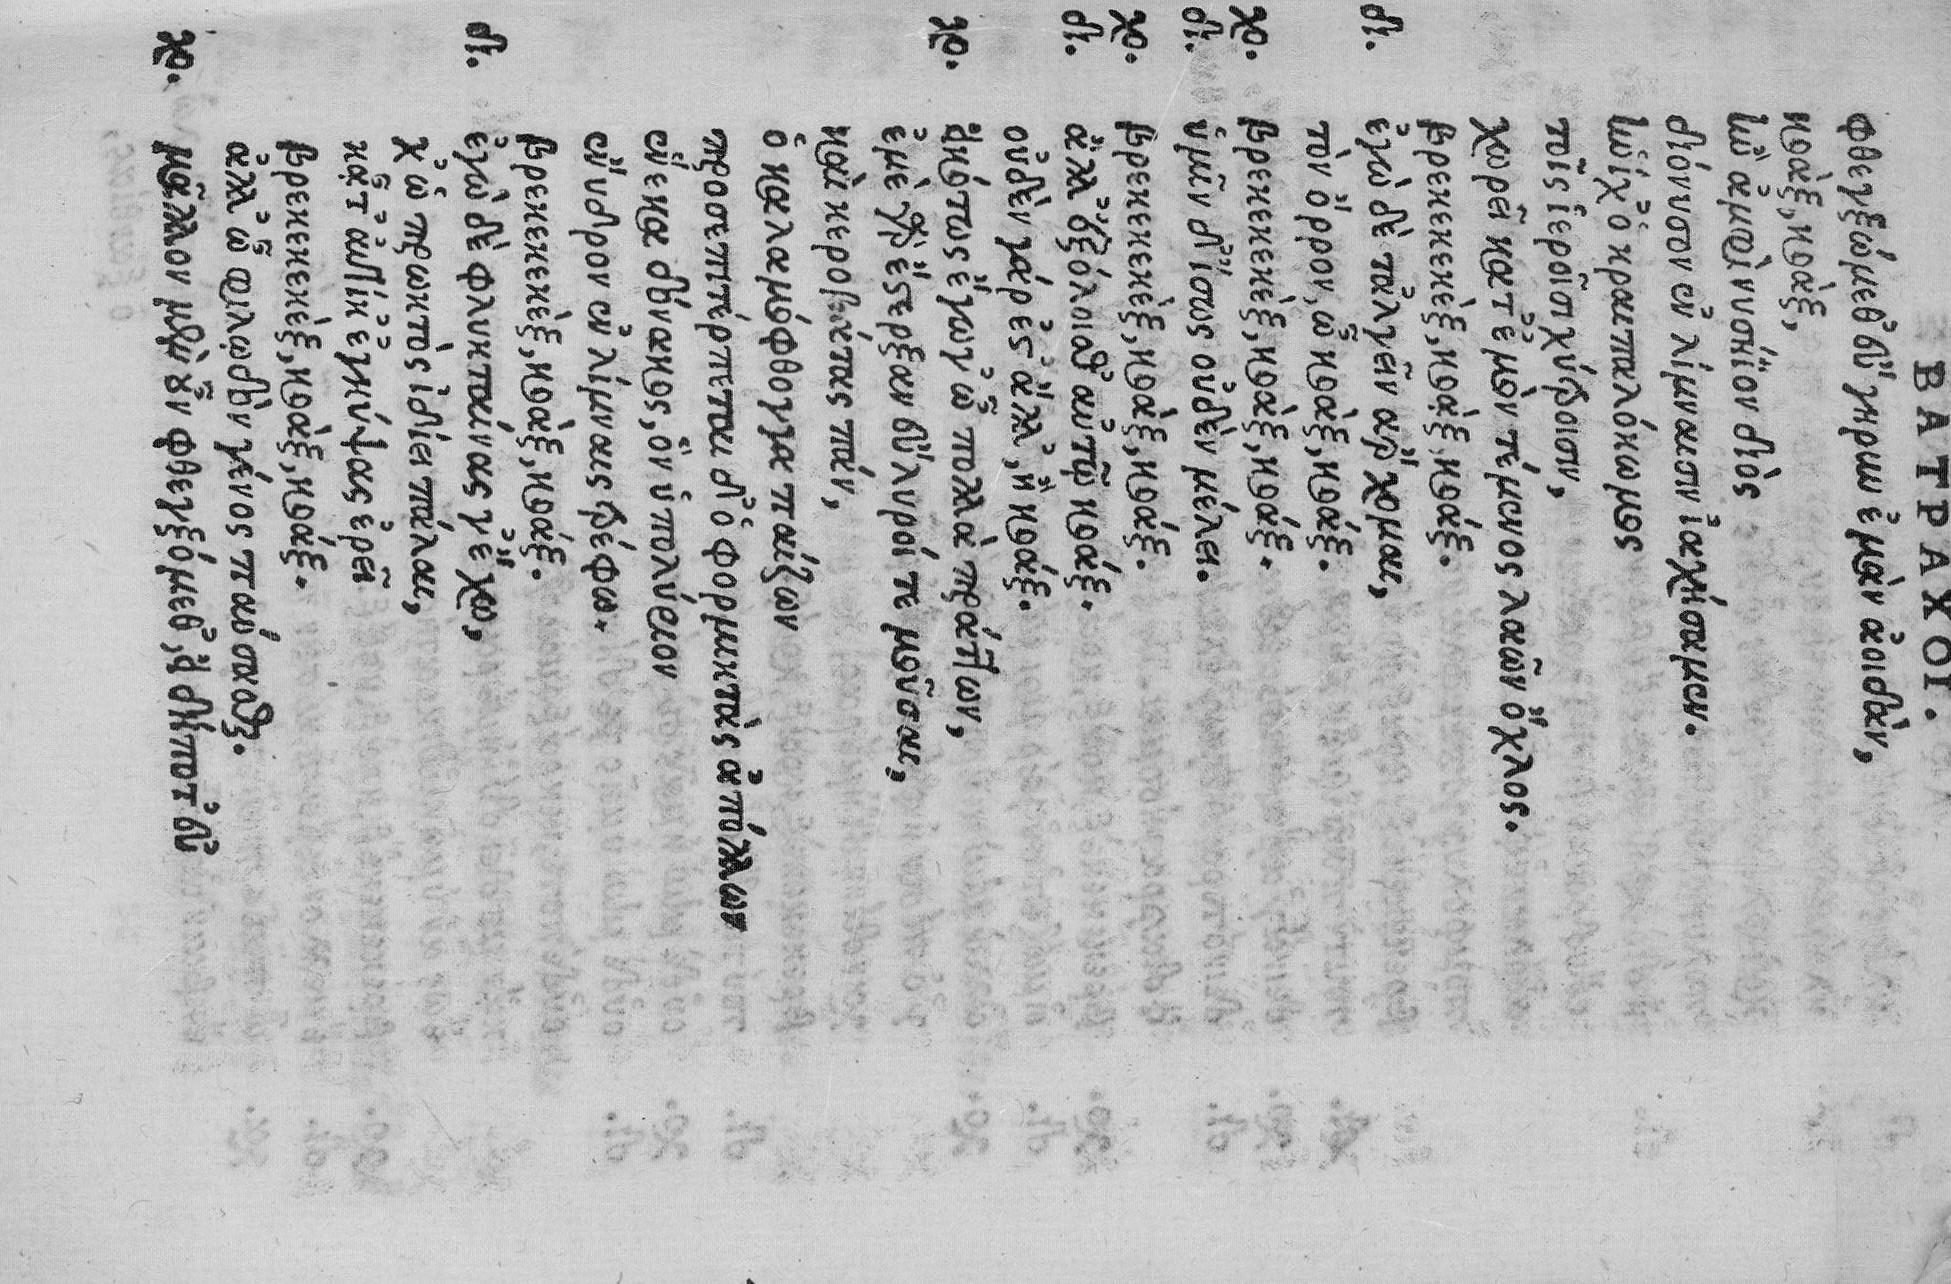 ΒΑΤΡΑΧΟΙ.
φθεγξώμεθ᾽ εὔγηρυν ἐμὰν ἀοιδὰν,
κοὰξ, κοὰξ,
ἣν ἀμφὶ νυσήϊον διὸς
διόνυσον ἐν λίμναισιν ἰαχήσαμεν.
ἡνίχ᾽ ὁ κραιπαλόκωμος
τοῖς ἱεροῖσι χύτροισι,
χωρεῖ κατ᾽ ἐμὸν τέμενος λαῶν ὄχλος.
βρεκεκεκὲξ, κοὰξ, κοάξ.
δι. ἐγὼ δὲ τ᾽ἀλγεῖν ἄρχομαι,
τὸν ὄρρον, ὦ κοὰξ, κοάξ.
χο. βρεκεκεκὲξ, κοὰξ, κοάξ.
δι. ὑμῖν δ᾽ ἴσως οὐδὲν μέλει.
χο. βρεκεκεκὲξ, κοὰξ, κοάξ.
δι. ἀλλ᾽ ἐξόλοισθ᾽ αὐτῷ κοάξ.
οὐδὲν γάρ ἐστ᾽ ἄλλ᾽, ἢ κοάξ.
χο. εἰκότως ἔγωγ᾽ ὦ πολλὰ πράττων,
ἐμὲ γὰρ ἔστερξαν εὔλυροί τε μοῦσαι,
καὶ κεροβάτας πάν,
ὁ καλαμόφθογγα παίζων
προσεπιτέρπεται δ᾽ ὁ φορμικτὰς ἀπόλλων
ἕνεκα δόνακος, ὃν ὑπολύριον
ἔνυδρον ἐν λίμναις τρέφω.
βρεκεκεκὲξ, κοὰξ, κοάξ.
δι. ἐγὼ δὲ φλυκταίνας γ᾽ ἔχω,
χ᾽ὠ πρωκτὸς ἰδίει πάλαι,
κᾆτ᾽ αὐτίκ᾽ ἐγκύψας ἐρεῖ
βρεκεκεκὲξ, κοὰξ, κοάξ.
ἀλλ᾽ ὦ φιλῳδὸν γένος παύσασθε.
χο. μᾶλλον μὲν οὖν φθεγξόμεθ᾽, εἰ δήποτ᾽ εὐ